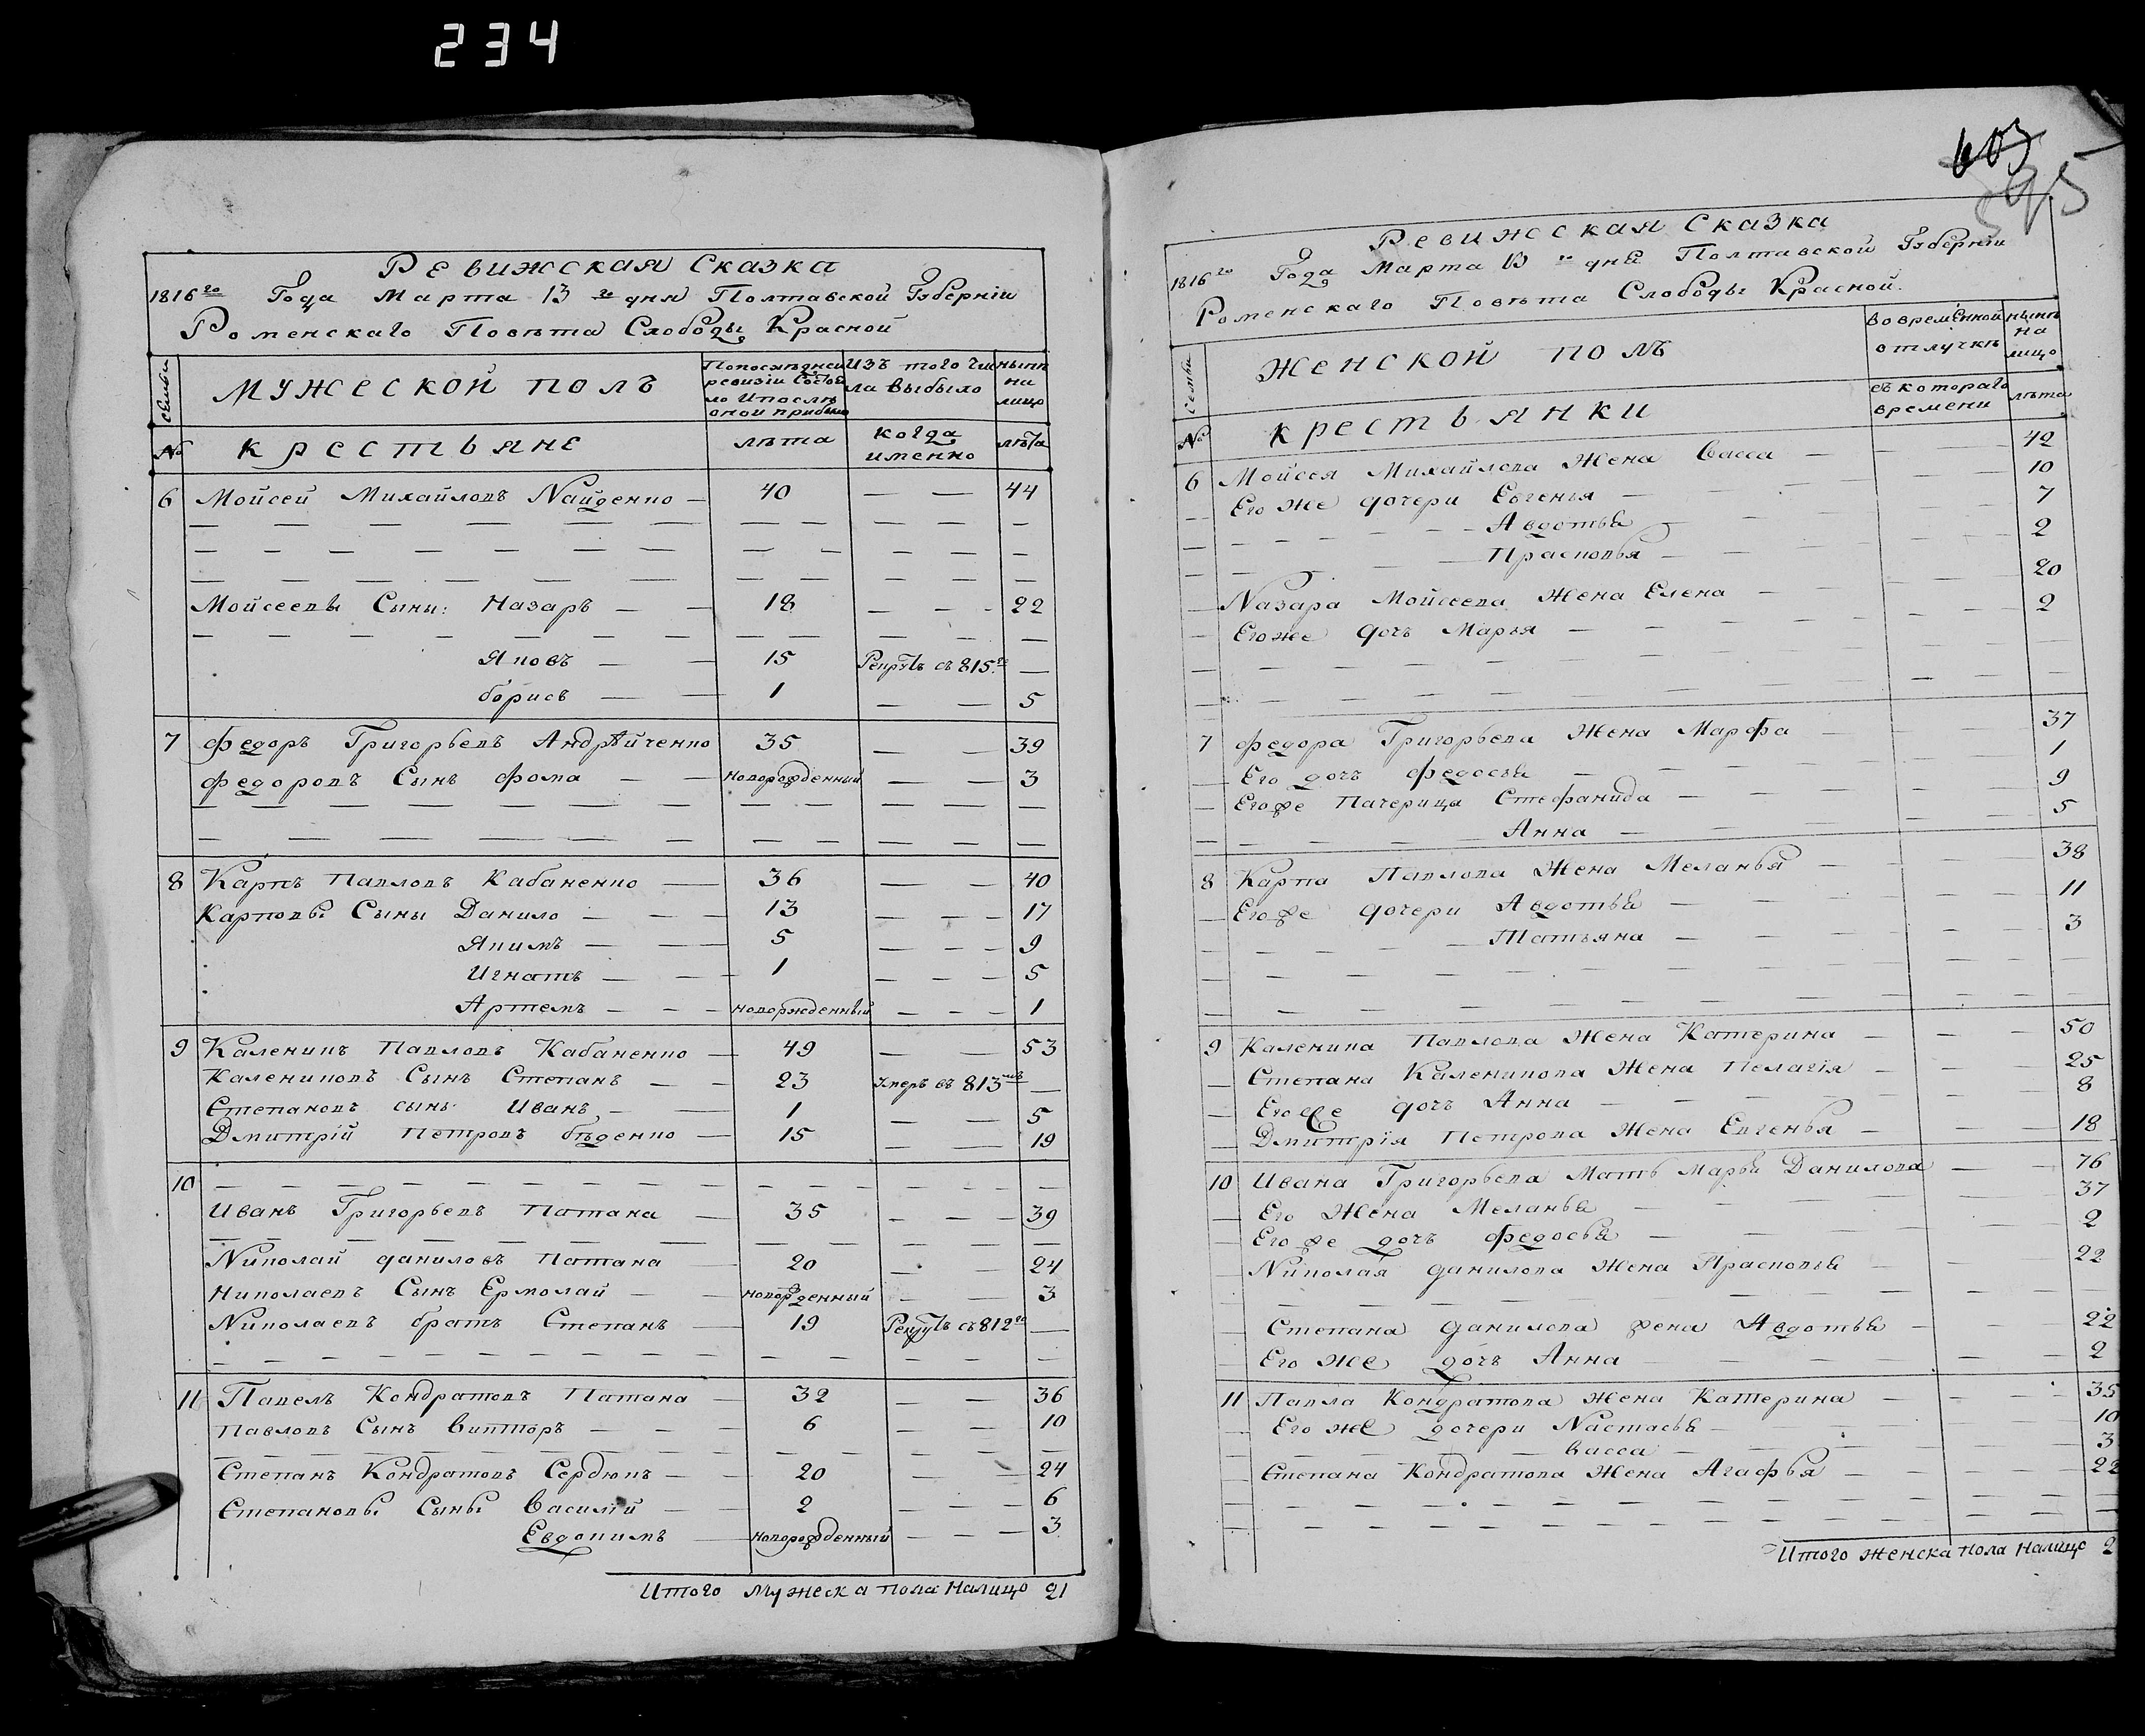 234
603
595
Ревижская Сказка
1816го Года Марта 13го дня Полтавской Губерніи
Роменскаго Повѣта Слободы Красной
семьи
МУЖЕСКОЙ ПОЛЪ
Попослѣдней ревизіи Состояло Ипослѣ оной прибыло
изъ того числа выбыло
нынѣ на лицо
№ крестьяне лѣта когда именно лѣта
6 Мойсей Михайловъ Найденко — 40 — — 44
Мойсеевы Сыни: Назаръ — — 18 — — - 22
Яковъ — — 15 Рекрутъ съ 815го —
борисъ — — 1 — — 5
7 федоръ Григорьевъ Андрѣйченко 35 — — 39
федоровъ Сынъ фома — — новорожденный — — 3
8 Карпъ Павловъ Кабаненко — 36 — — 40
Карповы Сыны Данило — — — 13 — — - 17
Якимъ — — — 5 — — - 9
Игнатъ — — — 1 — — - 5
Артемъ — — — новорожденный — — - 1
9 Каленикъ Павловъ Кабаненко — 49 — — 53
Калениковъ Сынъ Степанъ — — 23 Умеръ въ 813мъ —
Степановъ сынъ Иванъ — — 1 — — 5
Дмитрій Петровъ бѣденко — 15 — — 19
10
Иванъ Григорьевъ Потапа — 35 — — - 39
Николай даниловъ Потапа — 20 — — 24
Николаевъ Сынъ Ермолай — — новорожденный — — 3
Николаевъ братъ Степанъ — — 19 Рекрутъ съ 812го —
11 Павелъ Кондратовъ Потапа — 32 — — 36
Павловъ Сынъ викторъ — — — 6 — — 10
Степанъ Кондратовъ Сердюкъ — — 20 — — 24
Степановы Сыны Василій — — 2 — — — 6
Евдокимъ — новорожденный — — — 3
Итого Мужеска пола Налицо 21
Ревижская Сказка
1816го Года Марта 13го дня Полтавской Губерніи
Роменскаго Повѣта Слободы Красной.
семьи
ЖЕНСКОЙ ПОЛЪ
вовремѣнной отлучкѣ
нынѣ на лицо
№ крестьянки съ котораго времени лѣта
6 Мойсея Михайлова Жена Васса — — — 42
Его Же дочери Евгенія — — — 10
Авдотья — — — 7
Прасковья — — — 2
Назара Мойсеева Жена Елена — — — 20
Егоже дочъ Марья — — — 2
7 федора Григорьева Жена Марфа — — — 37
Его дочъ федосья — — — 1
Егоже Пачерицы Стефанида — — — 9
Анна — — — 5
8 Карпа Павлова Жена Меланья — — — 38
Егоже дочери Авдотья — — — 11
Татьяна — — — 3
9 Каленика Павлова Жена Катерина — — — 50
Степана Каленикова Жена Пелагія — — — 25
Егоже дочъ Анна — — — 8
Дмитрія Петрова Жена Евгенья — — — 18
10 Ивана Григорьева Мать Марья Данилова — — 76
Его Жена Меланья — — — 37
Егоже дочъ федосья — — — 2
Николая данилова Жена Прасковья — — — 22
Степана данилова жена Авдотья — — — 22
Его же дочъ Анна — — — 2
11 Павла Кондратова Жена Катерина — — — 35
Его же дочери Настасья — — — 10
васса — — — 3
Степана Кондратова Жена Агафья — — — 22
Итого женска пола налицо 2